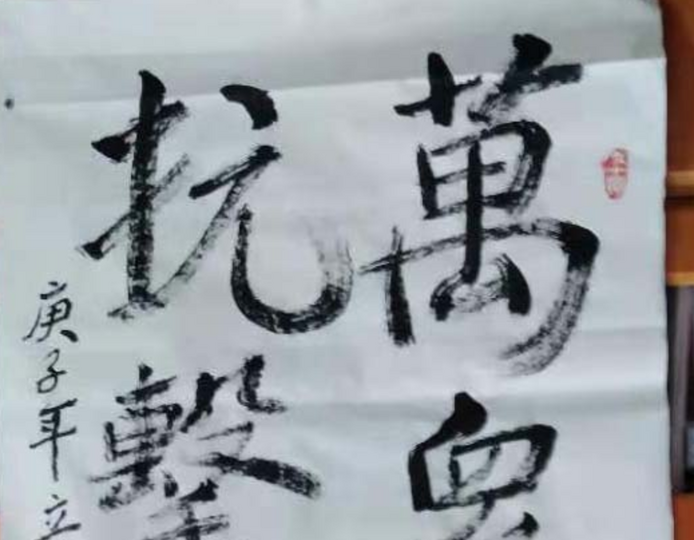 萬
抗擊
庚子年立